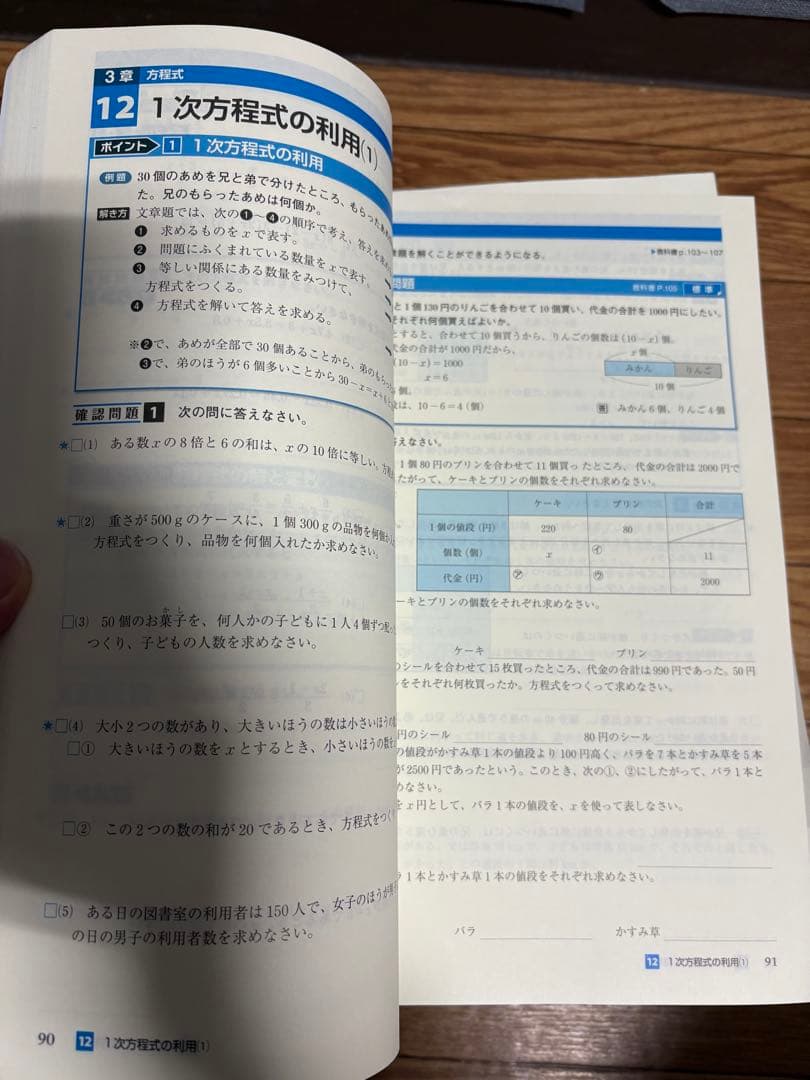 3章 方程式
12 1次方程式の利用(1)
ポイント 1 1次方程式の利用
例題 30個のあめを兄と弟で分けたところ、もらったあめ
た。兄のもらったあめは何個か。
解き方 文章題では、次の❶〜❹の順序で考え、答えを求め
❶ 求めるものをxで表す。
❷ 問題にふくまれている数量をxで表す。
❸ 等しい関係にある数量をみつけて、
方程式をつくる。
❹ 方程式を解いて答えを求める。
※❷で、あめが全部で30個あることから、弟のもらった
❸で、弟のほうが6個多いことから30−x=x+6
確認問題 1 次の問に答えなさい。
★□(1) ある数xの8倍と6の和は、xの10倍に等しい。方程
★□(2) 重さが500gのケースに、1個300gの品物を何個か
方程式をつくり、品物を何個入れたか求めなさい。
□(3) 50個のお菓子を、何人かの子どもに1人4個ずつ配
かし
つくり、子どもの人数を求めなさい。
★□(4) 大小2つの数があり、大きいほうの数は小さいほうの
□① 大きいほうの数をxとするとき、小さいほうの数を
□② この2つの数の和が20であるとき、方程式をつく
□(5) ある日の図書室の利用者は150人で、女子のほうが
の日の男子の利用者数を求めなさい。
90 12 1次方程式の利用(1)
題を解くことができるようになる。
▶教科書p.103〜107
問題 教科書P.105 標準
と1個130円のりんごを合わせて10個買い、代金の合計を1000円にしたい。
それぞれ何個買えばよいか。
とすると、合わせて10個買うから、りんごの個数は(10−x)個。
代金の合計が1000円だから、
(10−x)=1000
x=6
個。
は、10−6=4(個)
x個
みかん りんご
10個
答 みかん6個、りんご4個
答えなさい。
1個80円のプリンを合わせて11個買ったところ、代金の合計は2000円で
たがって、ケーキとプリンの個数をそれぞれ求めなさい。
ケーキ プリン 合計
1個の値段(円) 220 80
個数(個) x ㋑ 11
代金(円) ㋐ ㋒ 2000
ーキとプリンの個数をそれぞれ求めなさい。
ケーキ プリン
のシールを合わせて15枚買ったところ、代金の合計は990円であった。50円
ルをそれぞれ何枚買ったか。方程式をつくって求めなさい。
円のシール 80円のシール
の値段がかすみ草1本の値段より100円高く、バラを7本とかすみ草を5本
が2500円であったという。このとき、次の①、②にしたがって、バラ1本と
めなさい。
をx円として、バラ1本の値段を、xを使って表しなさい。
ラ1本とかすみ草1本の値段をそれぞれ求めなさい。
バラ かすみ草
12 1次方程式の利用(1) 91